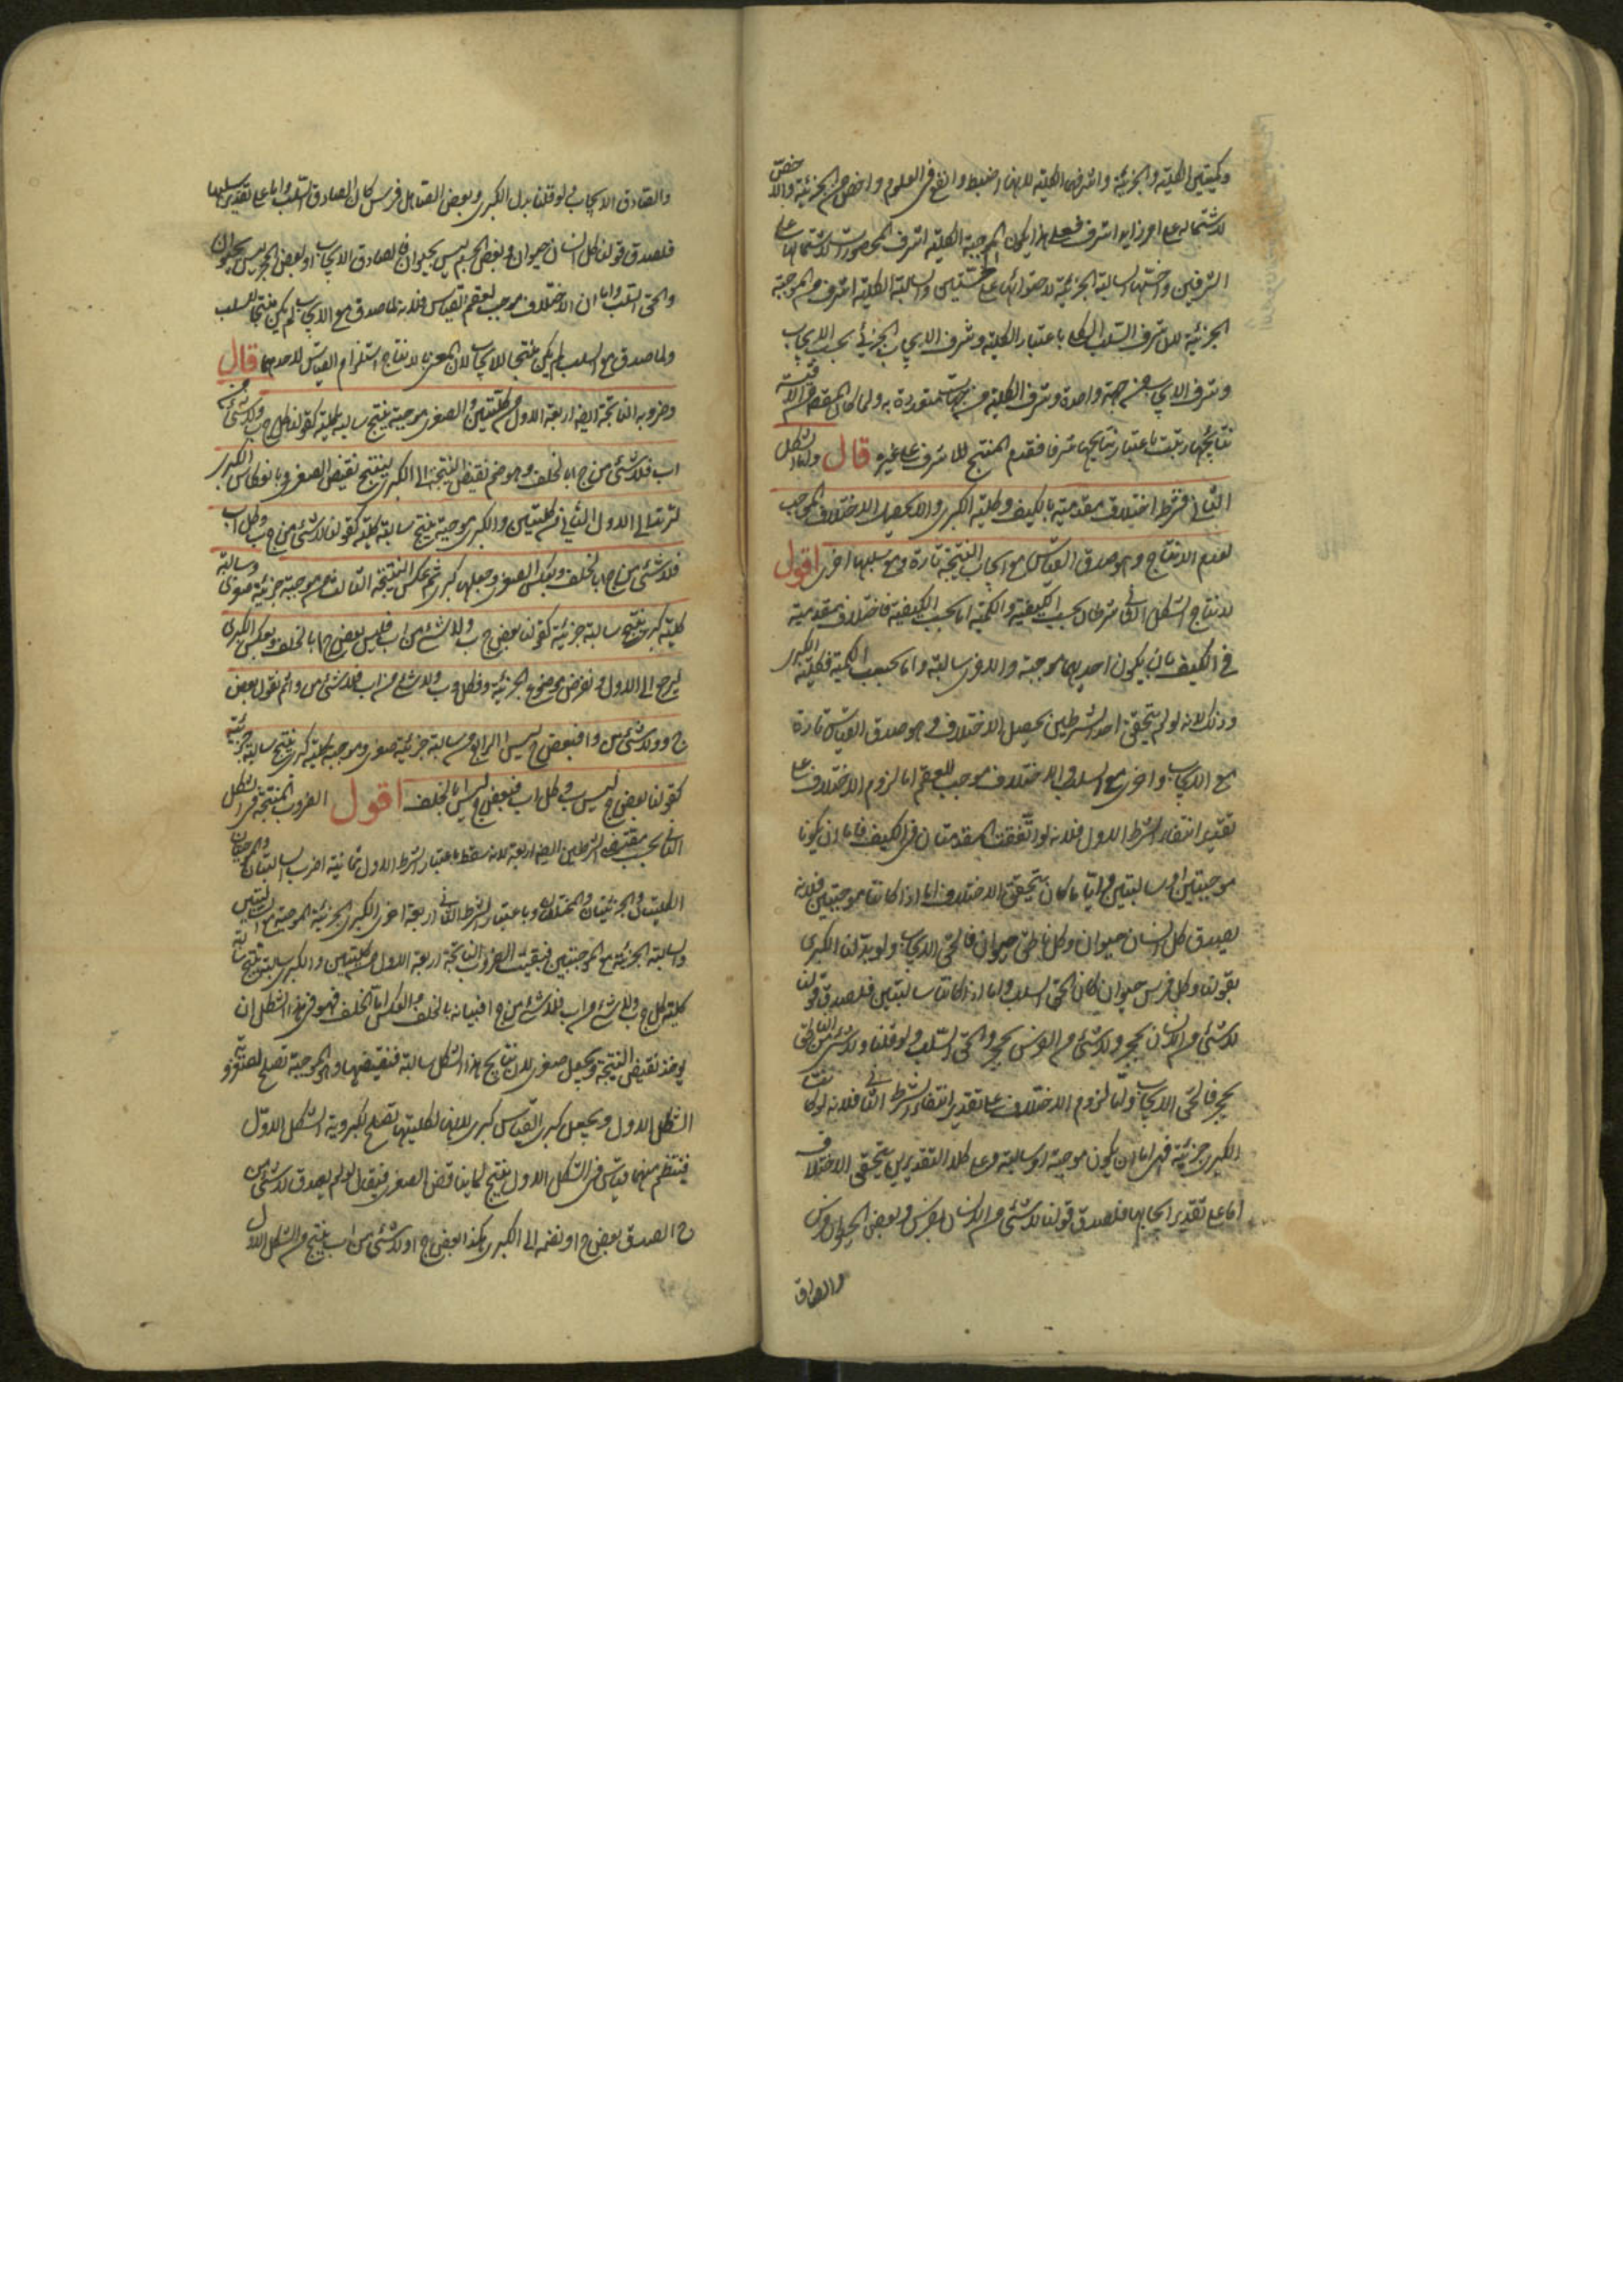 وكميتين الكلية والجزئية واشرفهما الكلية لانها اضبط وانفع في العلوم واخص من الجزئية والاخص
لاشتماله على امر زايد اشرف فعلى هذا يكون الموجبة الكلية اشرف المحصورات لاشتمالها على
الشرفين واخسها السالبة الجزئية لاحتوائها على الخستين والسالبة الكلية اشرف من الموجبة
الجزئية لان شرف السلب الكلي باعتبار الكلية وشرف الايجاب الجزئي بحسب الايجاب
وشرف الايجاب من جهة واحدة وشرف الكلية من جهات متعددة ولما كان المقصود من الاقيسة
نتايجها رتبت باعتبار نتايجها شرفا فقدم المنتج للاشرف على غيره قال واما الشكل
الثاني فشرط اختلاف مقدمتيه بالكيف وكلية الكبرى والا يحصل الاختلاف الموجب
لعدم الانتاج وهو صدق القياس مع ايجاب النتيجة تارة ومع سلبها اخرى اقول
لانتاج الشكل الثاني شرطان بحسب الكيفية والكمية اما بحسب الكيفية فاختلاف مقدمتيه
في الكيف بان يكون احديهما موجبة والاخرى سالبة واما بحسب الكمية فكلية الكبرى
وذلك لانه لو لم يتحقق احد الشرطين يحصل الاختلاف وهو صدق القياس تارة
مع الايجاب واخرى مع السلب والاختلاف موجب للعقم اما لزوم الاختلاف على
تقدير انتفاء الشرط الاول فلانه لو اتفقت المقدمتان في الكيف فاما ان يكونا
موجبتين او سالبتين وايا ما كان يتحقق الاختلاف اما اذا كانتا موجبتين فلانه
يصدق كل انسان حيوان وكل ناطق حيوان فالحق الايجاب ولو بدلنا الكبرى
بقولنا وكل فرس حيوان كان الحق السلب واما اذا كانتا سالبتين فلصدق قولنا
لا شئ من الانسان بحجر ولا شئ من الفرس بحجر والحق السلب ولو قلنا ولا شئ من الناطق
بحجر فالحق الايجاب واما لزوم الاختلاف على تقدير انتفاء الشرط الثاني فلانه لو كانت
الكبرى جزئية فهى اما ان يكون موجبة او سالبة وعلى كلا التقديرين يتحقق الاختلاف
اما على تقدير ايجابها فلصدق قولنا لا شئ من الانسان بفرس وبعض الحيوان فرس
والصادق
والصادق الايجاب ولو قلنا بدل الكبرى وبعض الصاهل فرس كان الصادق السلب واما على تقدير سلبها
فلصدق قولنا كل انسان حيوان وبعض الجسم ليس بحيوان فالصادق الايجاب او بعض الحجر ليس بحيوان
والحق السلب واما ان الاختلاف موجب لعقم القياس فلانه لما صدق مع الايجاب لم يكن منتجا للسلب
ولما صدق مع السلب لم يكن منتجا للايجاب لان المعنى بالانتاج استلزام القياس لاحدهما قال
وضروبه الناتجة ايضا اربعة الاول من كليتين والصغرى موجبة ينتج سالبة كلية كقولنا كل ج ب ولا شئ من
ا ب فلا شئ من ج ا بالخلف وهو ضم نقيض النتيجة الى الكبرى لينتج نقيض الصغرى وبانعكاس الكبرى
ليرتد الى الاول الثاني من كليتين والكبرى موجبة ينتج سالبة كلية كقولنا لا شئ من ج ب وكل ا ب
فلا شئ من ج ا بالخلف وبعكس الصغرى وجعلها كبرى ثم عكس النتيجة الثالث من موجبة جزئية صغرى وسالبة
كلية كبرى ينتج سالبة جزئية كقولنا بعض ج ب ولا شئ من ا ب فليس بعض ج ا بالخلف وبعكس الكبرى
ليرجع الى الاول ونفرض موضوع الجزئية د فكل د ب ولا شئ من ا ب فلا شئ من د ا ثم نقول بعض
ج د ولا شئ من د ا فبعض ج ليس ا الرابع من سالبة جزئية صغرى وموجبة كلية كبرى ينتج سالبة جزئية
كقولنا بعض ج ليس ب وكل ا ب فبعض ج ليس ا بالخلف اقول الضروب المنتجة في الشكل
الثاني بحسب مقتضى الشرطين ايضا اربعة لانه سقط باعتبار الشرط الاول ثمانية اضرب السالبتان والموجبتان
الكليتان والجزئيتان والمختلفتان وباعتبار الشرط الثاني اربعة اخرى الكبرى الجزئية الموجبة مع السالبتين
والسالبة الجزئية مع الموجبتين فبقيت الضروب الناتجة اربعة الاول من كليتين والكبرى سالبة ينتج سالبة
كلية كل ج ب ولا شئ من ا ب فلا شئ من ج ا بيانه بالخلف والعكس اما الخلف فهو في هذا الشكل ان
يوخذ نقيض النتيجة ويجعل صغرى لان نتايج هذا الشكل سالبة فنقيضها وهو الموجبة تصلح لصغروية
الشكل الاول ويجعل كبرى القياس كبرى لانها لكليتها تصلح لكبروية الشكل الاول
فينتظم منهما قياس في الشكل الاول ينتج لما يناقض الصغرى فيقال لو لم يصدق لا شئ من
ج ا لصدق بعض ج ا ونضمه الى الكبرى هكذا بعض ج ا ولا شئ من ا ب ينتج من الشكل الاول